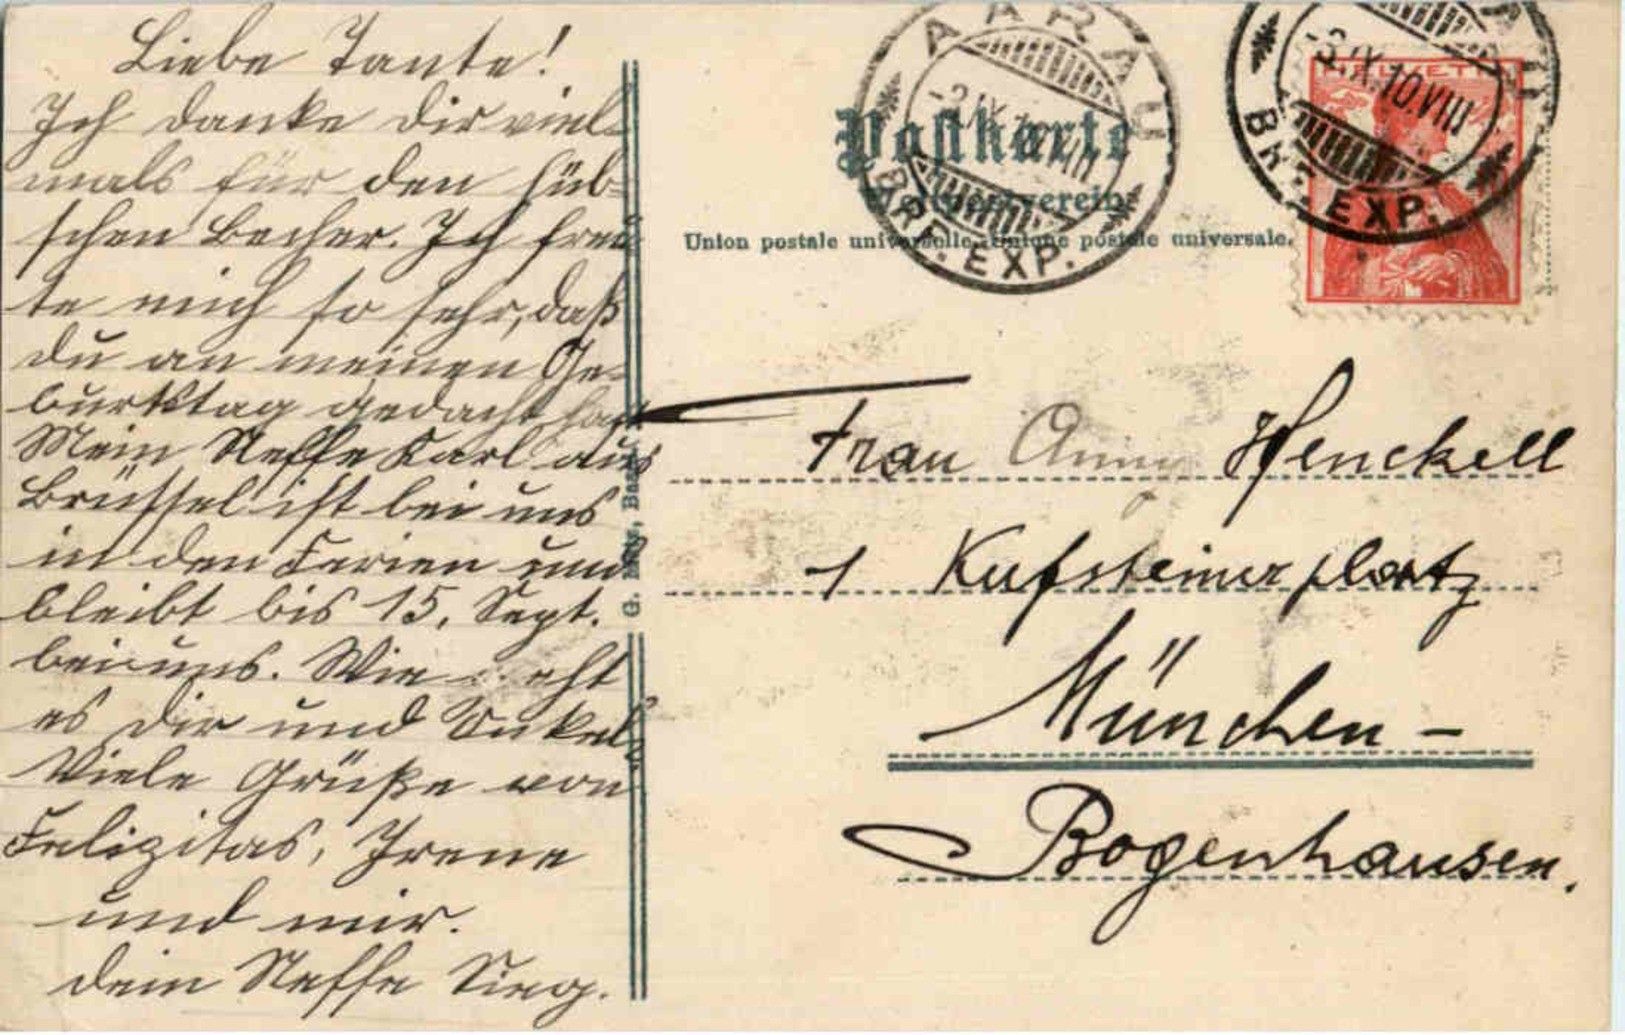 Liebe Tante!
Ich danke dir viel-
mals für den hüb-
schen Becher. Ich freu-
te mich so sehr, daß
du an meinen Ge-
burtstag gedacht hast
Mein Neffe Karl aus
Brüssel ist bei uns
in den Ferien und
bleibt bis 15. Sept.
bei uns. Wie geht
es dir und Onkel?
Viele Grüße von
Felizitas, Irene
und mir.
dein Neffe Sieg.
G. Basel
AARAU
-3.IX.10.VIII
BRF. EXP.
Postkarte
Weltpostverein.
Union postale universelle. Unione postale universale.
HELVETIA
-3.IX.10.VIII
BRF. EXP.
Frau Anny Henckell
1 Kufsteinerplatz
München -
Bogenhausen.